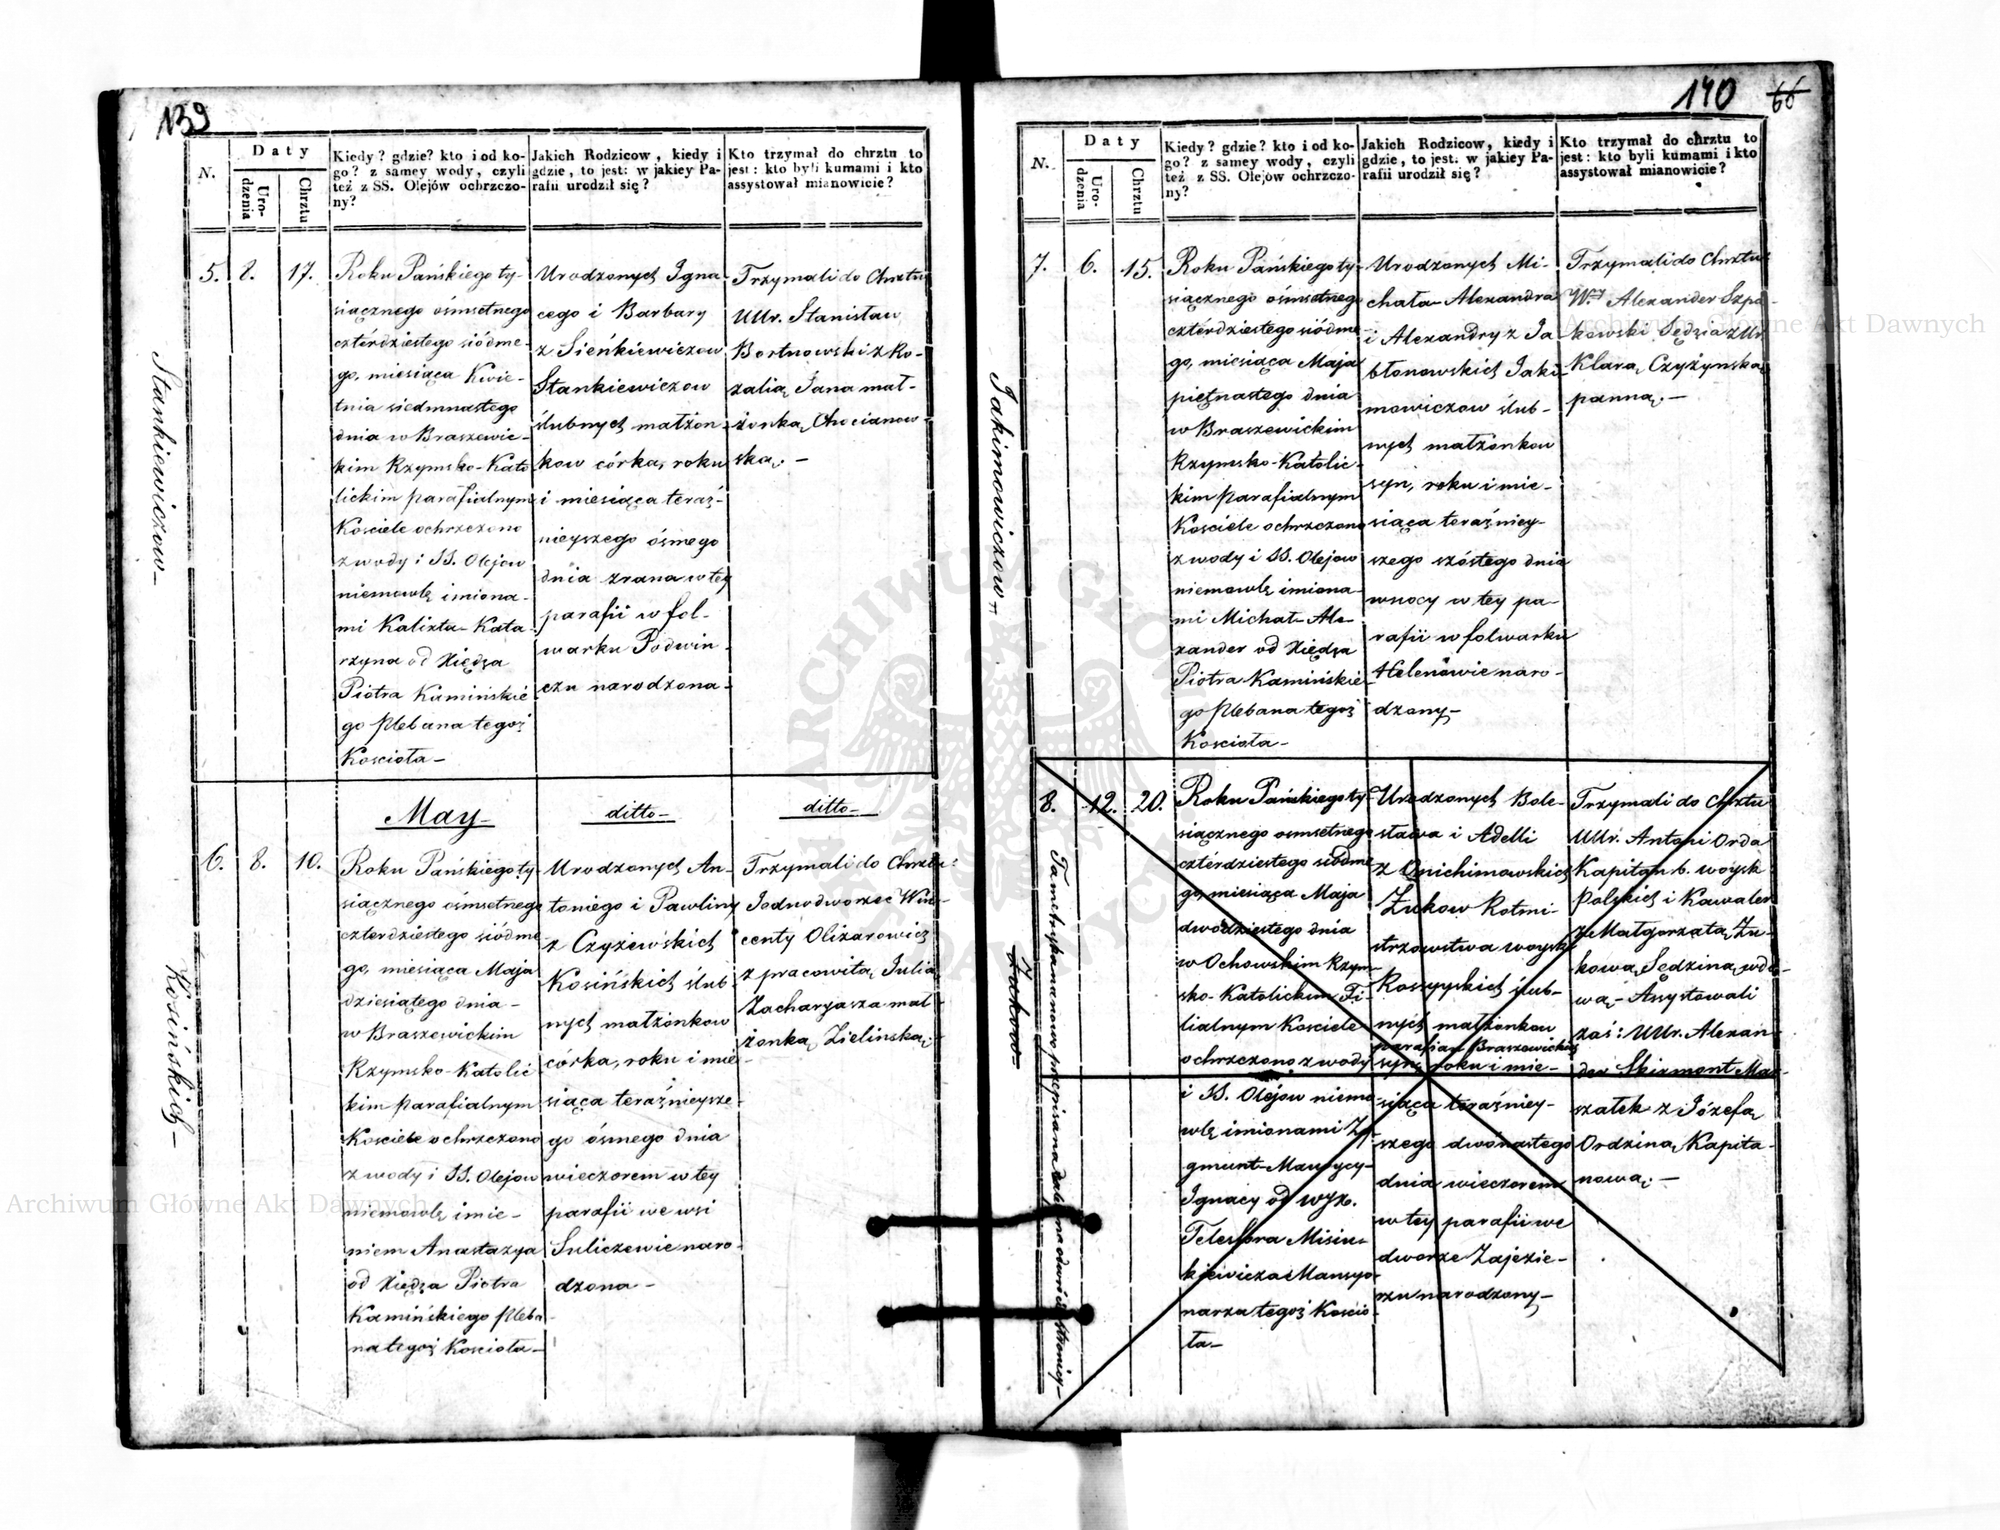 139
N.
Daty
Urodzenia
Chrztu
Kiedy? gdzie? kto i od ko-
go? z samey wody, czyli
też z SS. Olejów ochrzczo-
ny?
Jakich Rodzicow, kiedy i
gdzie, to jest: w jakiey Pa-
rafii urodził się?
Kto trzymał do chrztu to
jest: kto byli kumami i kto
assystował mianowicie?
Stankiewiczow
5. 8. 17.
Roku Pańskiego ty-
siącznego ośmsetnego
czterdziestego siódme-
go, miesiąca Kwie-
tnia siedmnastego
dnia w Braszewic-
kim Rzymsko-Kato
lickim parafialnym
Kościele ochrzczono
z wody i SS. Olejow
niemowlę imiona-
mi Kalixta-Kata-
rzyna od Xiędza
Piotra Kamińskie
go Plebana tegoż
Kościoła-
Urodzonych Igna-
cego i Barbary
z Sieńkiewiczow
Stankiewiczow
ślubnych małżon-
kow córka, roku
i miesiąca teraź-
nieyszego ósmego
dnia zrana w tey
parafii w fol-
warku Podwin-
czu narodzona-
Trzymali do Chrztu
UUr. Stanisław
Bortnowski z Ro-
zalią Jana mał-
żonką Chocianow-
ską.-
Kosińskich-
May-
ditto-
ditto-
6. 8. 10.
Roku Pańskiego ty-
siącznego ośmsetnego
czterdziestego siódme
go, miesiąca Maja
dziesiątego dnia-
w Braszewickim
Rzymsko-Katolic
kim parafialnym
Kościele ochrzczono
z wody i SS. Olejow
niemowlę imie-
niem Anastazya
od Xiędza Piotra
Kamińskiego Pleba-
na tegoż Kościoła-
Urodzonych An-
toniego i Pawliny
z Czyżewskich
Kosińskich ślub-
nych małżonkow
córka, roku i mie-
siąca teraźnieysze-
go ósmego dnia
wieczorem w tey
parafii we wsi
Suliczewie naro-
dzona-
Trzymali do Chrztu
Jednodworzec Win-
centy Olizarowicz
z pracowitą Julią
Zacharyasza mał-
żonką Zielinską.-
140
66
N.
Daty
Urodzenia
Chrztu
Kiedy? gdzie? kto i od ko-
go? z samey wody, czyli
też z SS. Olejow ochrzczo-
ny?
Jakich Rodzicow, kiedy i
gdzie, to jest: w jakiey Pa-
rafii urodził się?
Kto trzymał do chrztu to
jest: kto byli kumami i kto
assystował mianowicie?
Jakimowiczow-
7. 6. 15.
Roku Pańskiego ty-
siącznego ośmsetnego
czterdziestego siódme
go, miesiąca Maja
piętnastego dnia
w Braszewickim
Rzymsko-Katolic-
kim parafialnym
Kościele ochrzczono
z wody i SS. Olejow
niemowlę imiona-
mi Michał-Ale-
xander od Xiędza
Piotra Kamińskie-
go Plebana tegoż
Kościoła-
Urodzonych Mi-
chała-Alexandra
i Alexandry z Ja
błonowskich Jaki-
mowiczow ślub-
nych małżonkow
syn, roku i mie-
siąca teraźniey-
szego szóstego dnia
w nocy w tey pa-
rafii w folwarku
Helenowie naro-
dzony-
Trzymali do Chrztu
W. Alexander Szpa-
kowski Sędzia z Ur.
Klarą Czyżynską
panną.-
Żukow-
8. 12. 20.
Roku Pańskiego ty-
siącznego osmsetnego
czterdziestego siódme
go, miesiąca Maja
dwódziestego dnia
w Ochowskim Rzym-
sko-Katolickim Fi-
lialnym Kościele
ochrzczono z wody
i SS. Olejow niemo-
wlę imionami Zy-
gmunt-Maurycy-
Ignacy od wyż.
Telesfora Misiu-
kiewicza Mansyo-
narza tegoż Kościo-
ła-
Urodzonych Bole-
sława i Adelli
z Onichimowskich
Żukow Rotmi-
strzowstwa woysk
Rossyyskich ślub-
nych małżonkow
parafian Braszewickich
syn, roku i mie-
siąca teraźniey-
szego dwónastego
dnia wieczorem
w tey parafii we
dworze Zajezie-
rzu narodzony-
Trzymali do Chrztu
UUr. Antoni Orda
Kapitan b. woysk
Polskich i Kawaler
z Małgorzatą Żu-
kową Sędziną wdo-
wą-Assystowali
zaś: UUr. Alexan-
der Skirmont Mar-
szałek z Józefą
Ordziną Kapita-
nową.-
Archiwum Główne Akt Dawnych
Archiwum Główne Akt Dawnych